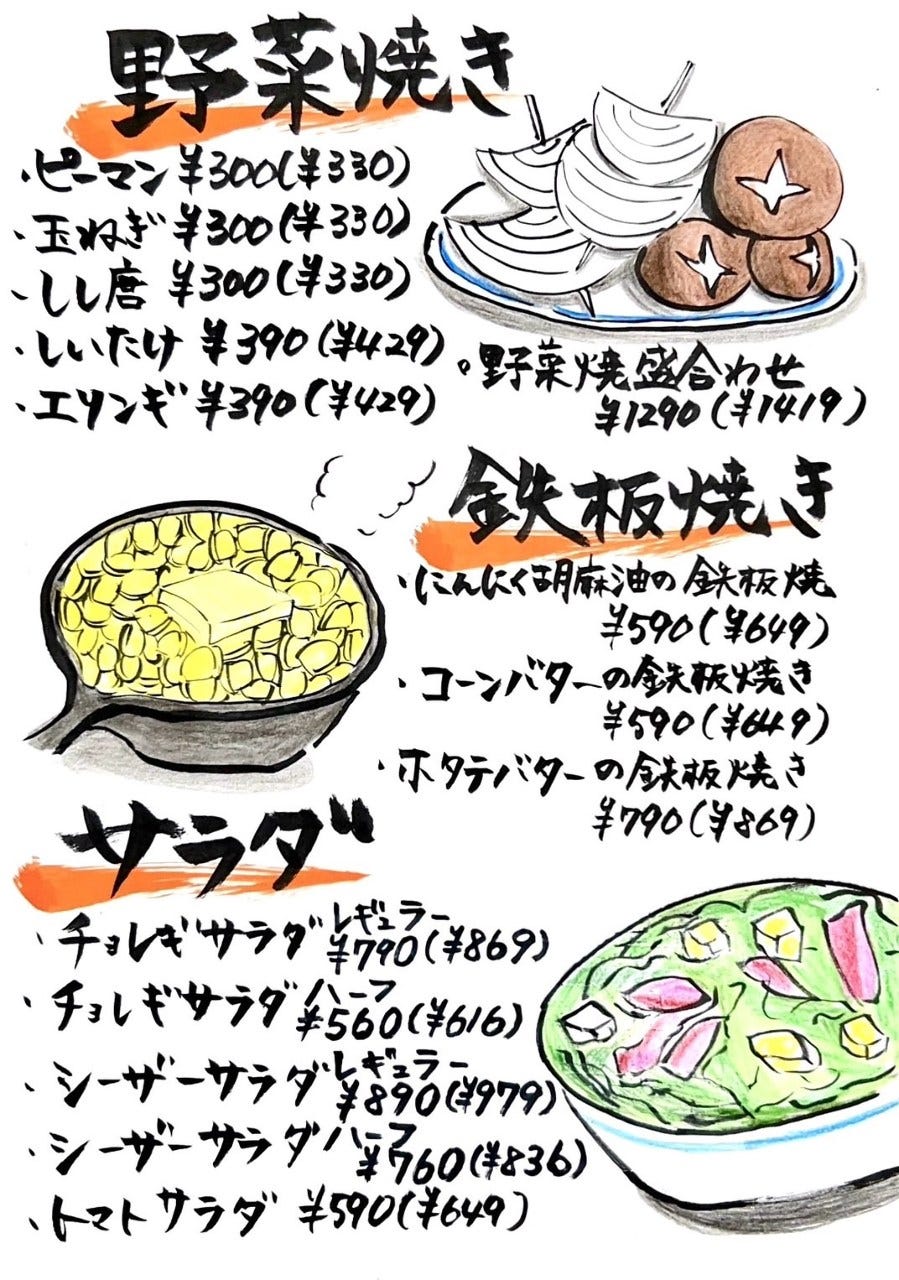 野菜焼き
・ピーマン ¥300(¥330)
・玉ねぎ ¥300(¥330)
・しし唐 ¥300(¥330)
・しいたけ ¥390(¥429)
・エリンギ ¥390(¥429)
。野菜焼盛合わせ
¥1290(¥1419)
鉄板焼き
・にんにく胡麻油の鉄板焼
¥590(¥649)
・コーンバターの鉄板焼き
¥590(¥649)
・ホタテバターの鉄板焼き
¥790(¥869)
サラダ
・チョレギサラダ レギュラー
¥790(¥869)
・チョレギサラダ ハーフ
¥560(¥616)
・シーザーサラダ レギュラー
¥890(¥979)
・シーザーサラダ ハーフ
¥760(¥836)
・トマトサラダ ¥590(¥649)